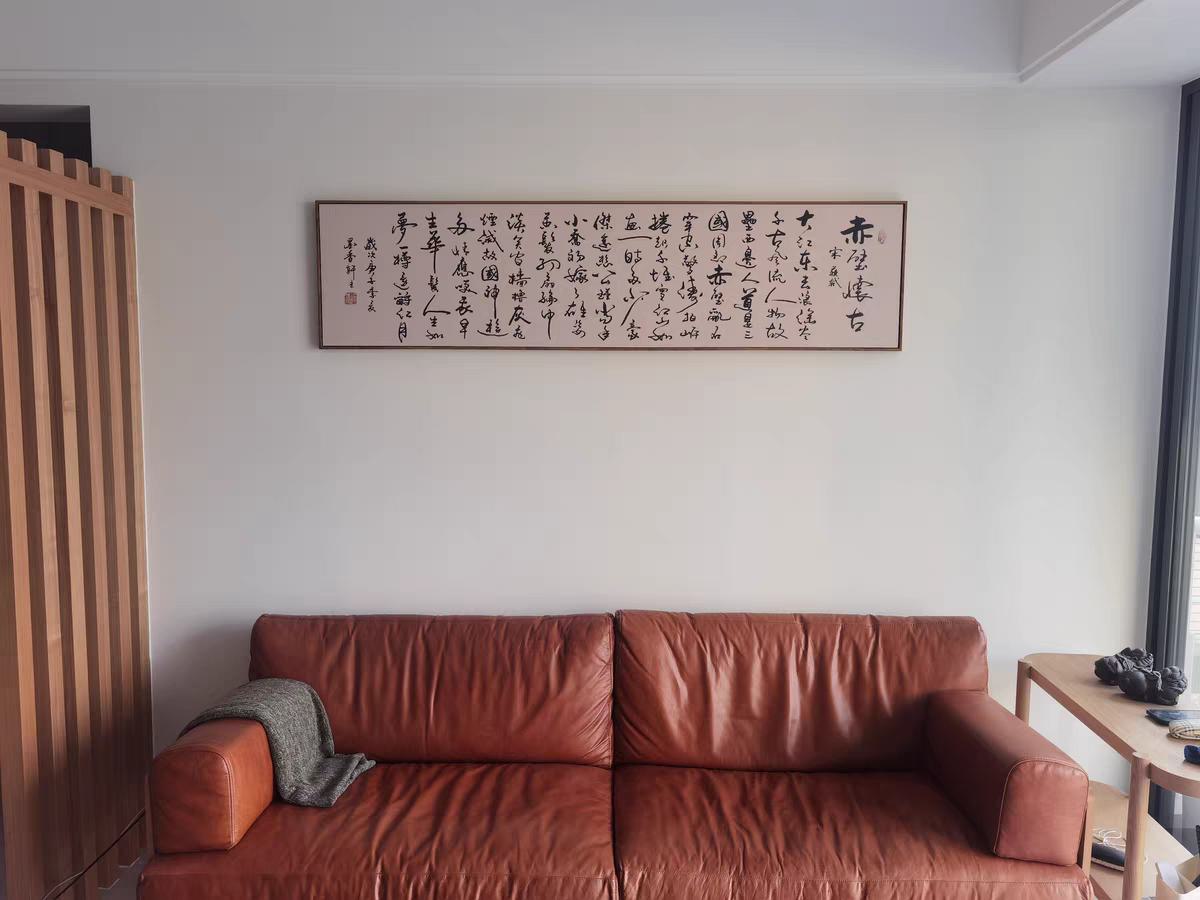 赤壁懷古
宋 蘇軾
大江东去浪淘盡
千古風流人物故
壘西邊人道是三
國周郎赤壁亂石
穿空驚濤拍岸
捲起千堆雪江山如
畫一時多少豪
傑遙想公瑾當年
小喬初嫁了雄姿
英發羽扇綸巾
談笑間檣櫓灰飛
煙滅故國神遊
多情應笑我早
生華髮人生如
夢一樽還酹江月
歲次庚子季夏
墨香軒主